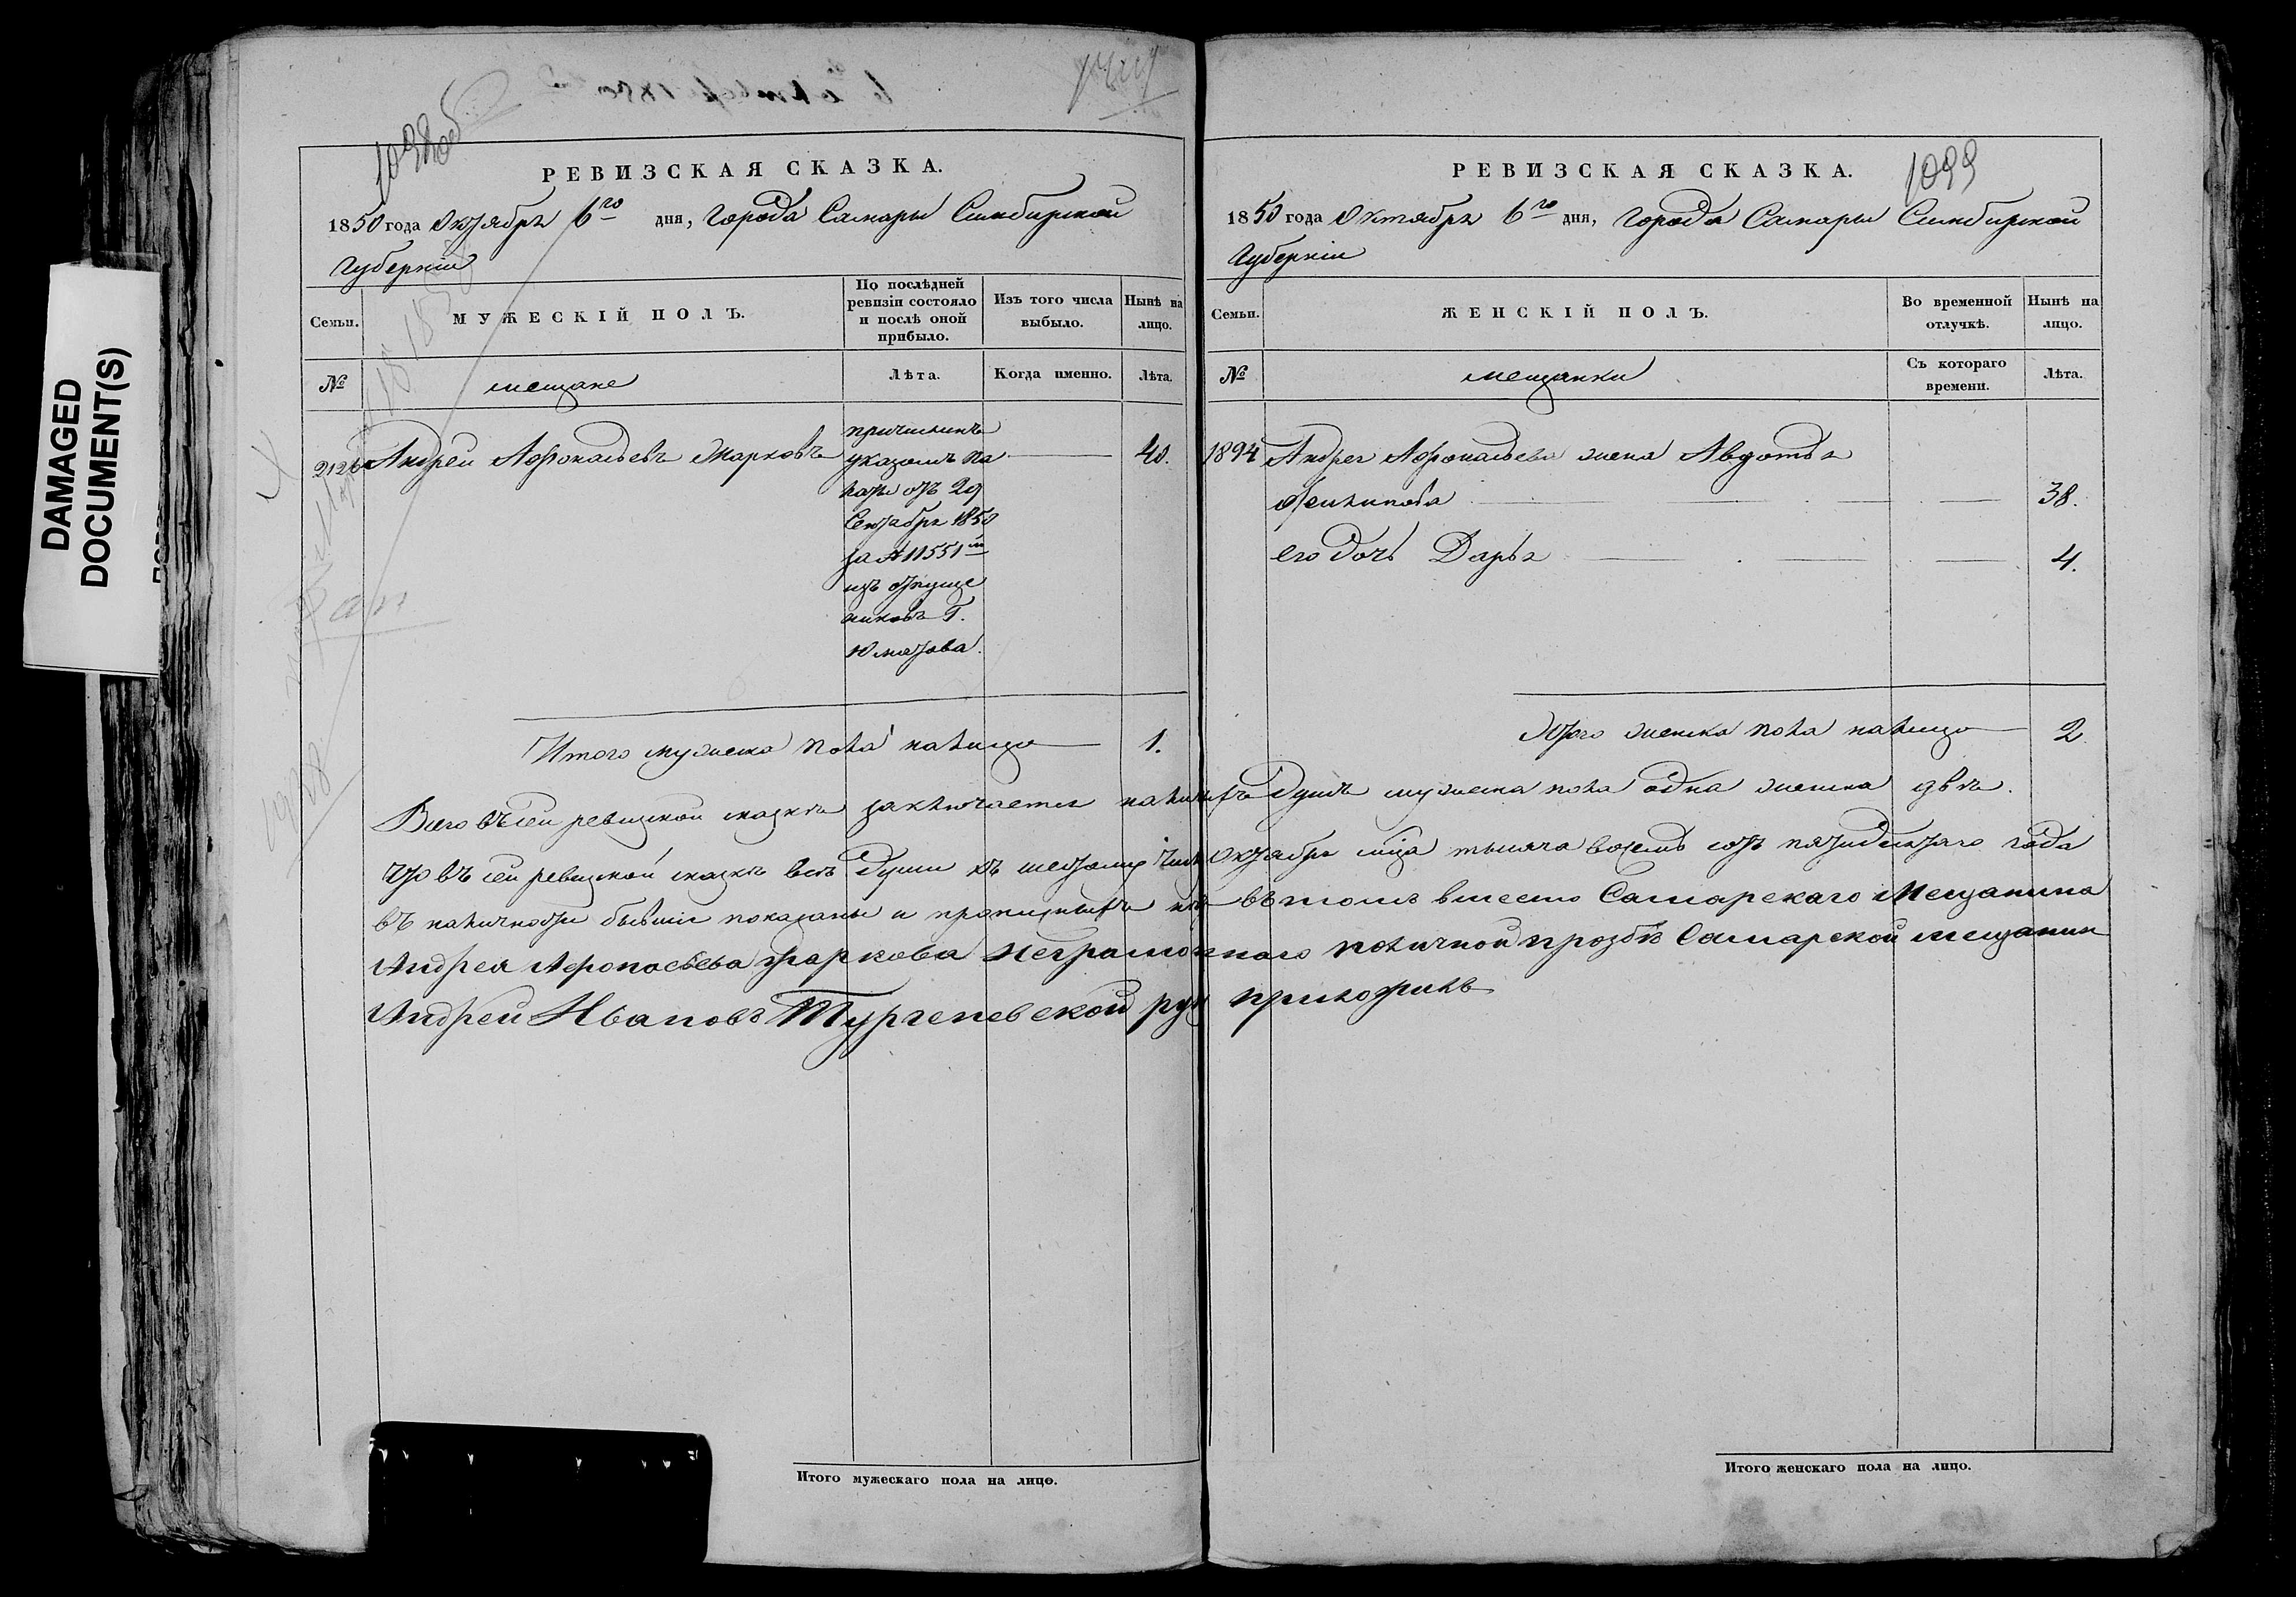 DAMAGED
DOCUMENT(S)
1098 об
РЕВИЗСКАЯ СКАЗКА.
1850 года Октября 6го дня, Города Самары Симбирской
Губернии
Семьи.
МУЖЕСКІЙ ПОЛЪ.
По послѣдней
ревизіи состояло
и послѣ оной
прибыло.
Изъ того числа
выбыло.
Нынѣ на
лицо.
№
мещане
Лѣта.
Когда именно.
Лѣта.
2126 Андрей Афонасьевъ Марковъ
причисленъ
указомъ па
латы отъ 29
Сентября 1850
за № 11551м
изъ отпуще
никовъ Г.
Юматова.
40.
Итого мужеска пола налицо 1.
1099
РЕВИЗСКАЯ СКАЗКА.
1850 года Октября 6го дня, Города Самары Симбирской
Губернии
Семьи.
ЖЕНСКІЙ ПОЛЪ.
Во временной
отлучкѣ.
Нынѣ на
лицо.
№
мещанки
Съ котораго
времени.
Лѣта.
1894 Андрея Афонасьева жена Авдотья
38.
его дочь Дарья 4.
Итого женска пола налицо 2
Всего въ сей ревизкой сказкѣ заключается наличныхъ Душъ мужеска пола одна женска двѣ.
что въ сей ревизкой сказкѣ всѣ Души къ шестому числу Октября мца тысяча восемь сотъ пятидесятаго года
въ наличности бывшіе показаны и прописныхъ нѣтъ въ томъ вместо Самарскаго Мещанина
Андрея Афонасьева Маркова неграмотнаго поличной прозбѣ Самарской мещанин
Андрей Ивановъ Тургеневской руку приложилъ
Итого мужескаго пола на лицо.
Итого женскаго пола на лицо.